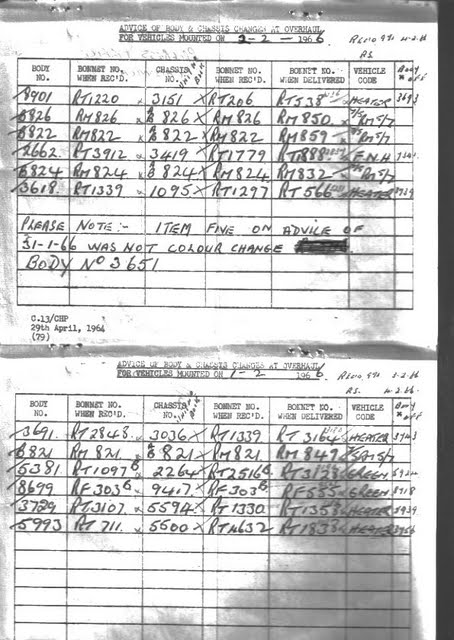 ADVICE OF BODY & CHASSIS CHANGES AT OVERHAUL
FOR VEHICLES MOUNTED ON 2-2- 1966
BODY NO. BONNET NO. WHEN REC'D. CHASSIS NO. BONNET NO. WHEN REC'D. BONNET NO. WHEN DELIVERED VEHICLE CODE Body
8901 RT1220 3151 RT206 RT538 HEATER 3693
B826 RM826 B826 RM826 RM850 RM5/7
B822 RM822 B822 RM822 RM859 RM5/7
2662 RT3912 3419 RT1779 RT1888 F.N.H
B824 RM824 B824 RM824 RM832 RM5/7
3618 RT1339 1095 RT1297 RT566 HEATER
PLEASE NOTE :- ITEM FIVE ON ADVICE OF
31-1-66 WAS NOT COLOUR CHANGE
BODY No 3651
C.13/CHP
29th April, 1964
(79)
ADVICE OF BODY & CHASSIS CHANGES AT OVERHAUL
FOR VEHICLES MOUNTED ON 1-2 1966
BODY NO. BONNET NO. WHEN REC'D. CHASSIS NO. BONNET NO. WHEN REC'D. BONNET NO. WHEN DELIVERED VEHICLE CODE Body
3691 RT2848 3036 RT1339 RT3164 HEATER
B821 RM821 B821 RM821 RM849
5381 RT1097 2264 RT2516 RT3123 GREEN
8699 RF3036 9417 RF3036 RF555 GREEN
3729 RT3107 5594 RT1330 RT1358 HEATER
5993 RT711 5500 RT4632 RT1838 HEATER